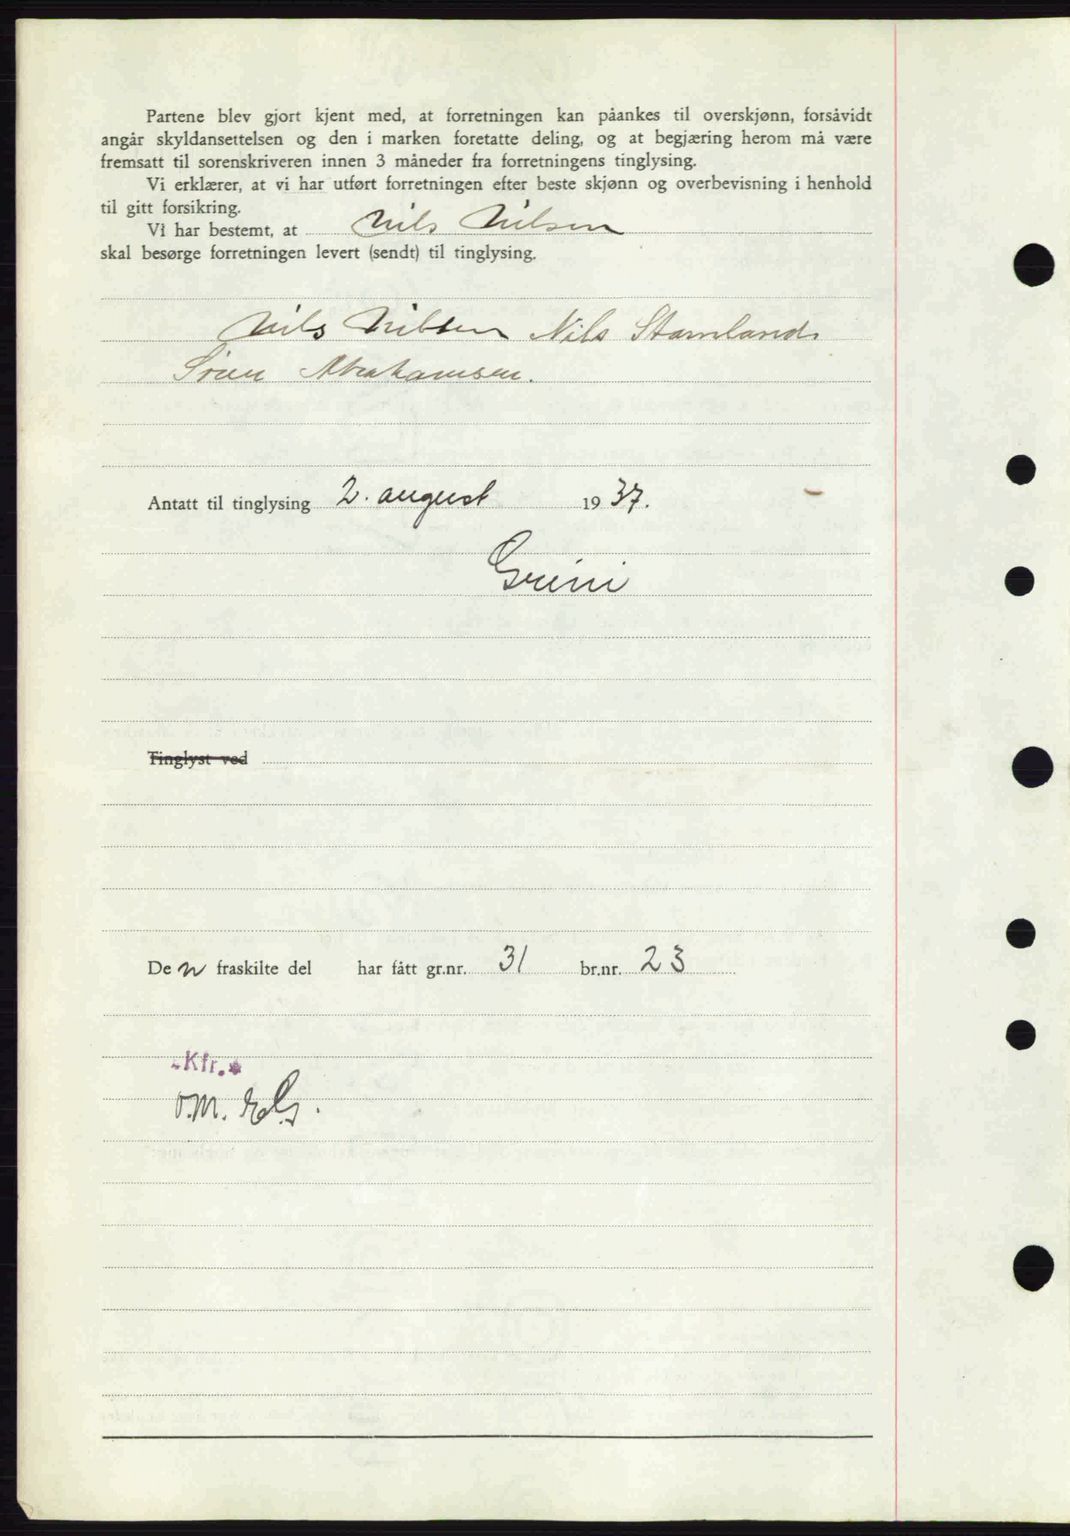 Partene blev gjort kjent med, at forretningen kan påankes til overskjønn, forsåvidt
angår skyldansettelsen og den i marken foretatte deling, og at begjæring herom må være
fremsatt til sorenskriveren innen 3 måneder fra forretningens tinglysing.
Vi erklærer, at vi har utført forretningen efter beste skjønn og overbevisning i henhold
til gitt forsikring.
Vi har bestemt, at Nils Nilsen
skal besørge forretningen levert (sendt) til tinglysing.
Nils Nilsen Nils Stamland
Søren Abrahamsen.
Antatt til tinglysing 2. august 1937.
Greini
Tinglyst ved
De n fraskilte del har fått gr.nr. 31 br.nr. 23
-Kfr.*